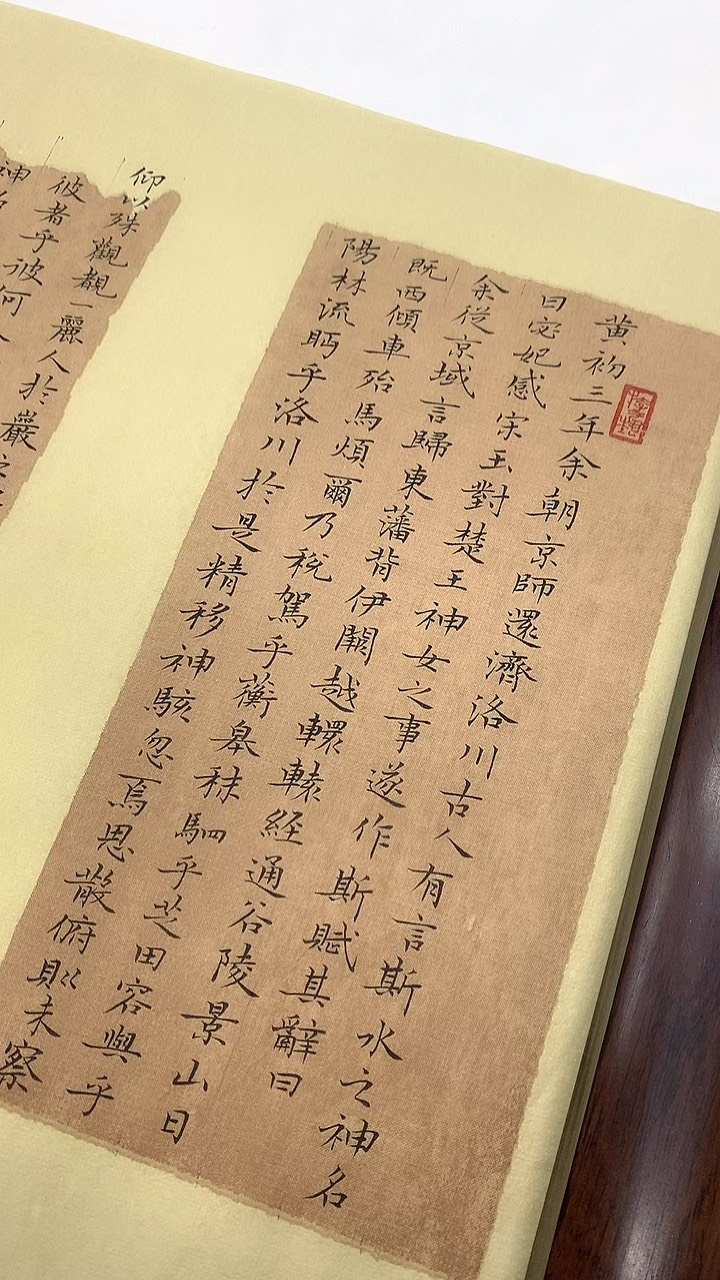 黄初三年余朝京師還濟洛川古人有言斯水之神名
曰宓妃感宋玉對楚王神女之事遂作斯賦其辭曰
余從京域言歸東藩背伊闕越轘轅經通谷陵景山日
既西傾車殆馬煩爾乃稅駕乎蘅皋秣駟乎芝田容與乎
陽林流眄乎洛川於是精移神駭忽焉思散俯則未察
仰以殊觀覩一麗人於巖之
彼者乎彼何人
神